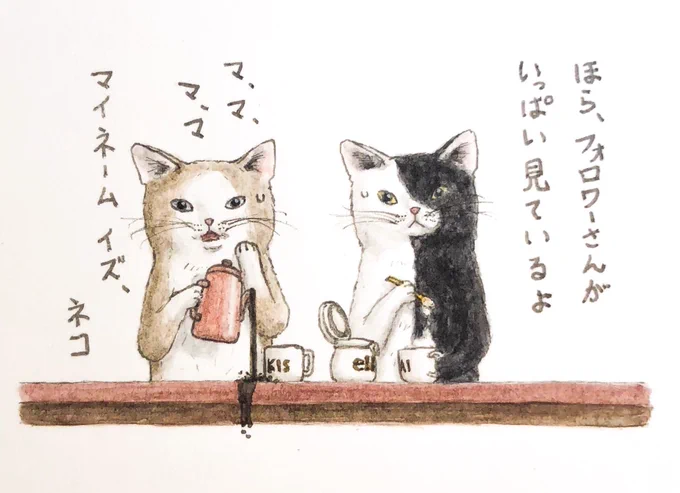 ほら、フォロワーさんが
いっぱい見ているよ
マ、マ、
マ、マ
マイネーム イズ、
ネコ
KIS
ell
AI